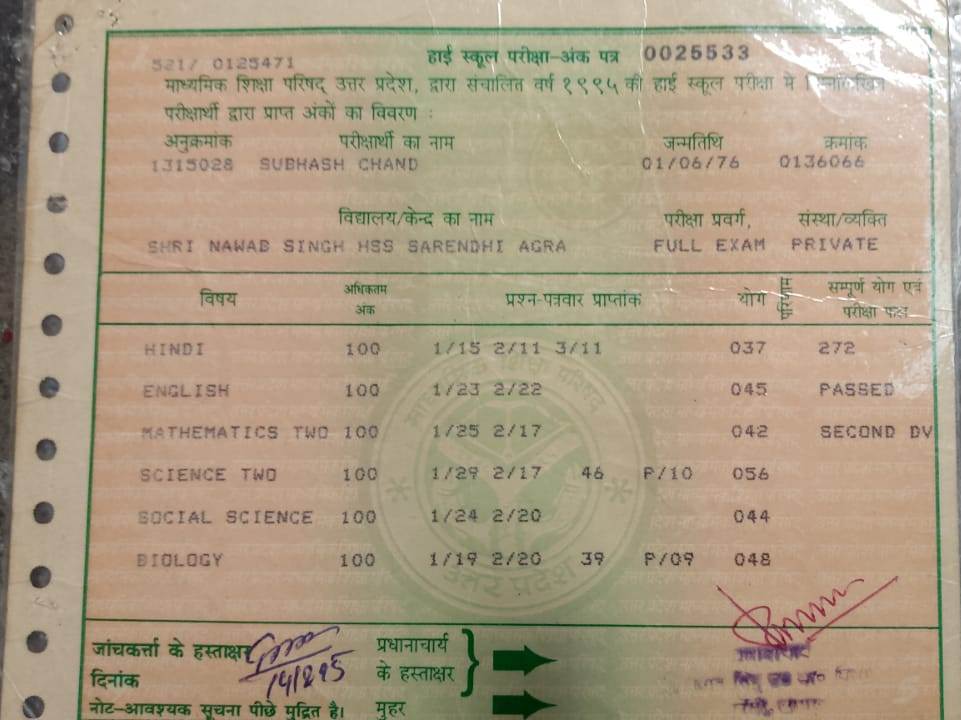 521/ 0125471 हाई स्कूल परीक्षा-अंक पत्र 0025533
माध्यमिक शिक्षा परिषद् उत्तर प्रदेश, द्वारा संचालित वर्ष १९९५ की हाई स्कूल परीक्षा में
परीक्षार्थी द्वारा प्राप्त अंकों का विवरण :
अनुक्रमांक परीक्षार्थी का नाम जन्मतिथि क्रमांक
1315028 SUBHASH CHAND 01/06/76 0136066
विद्यालय/केन्द का नाम परीक्षा प्रवर्ग, संस्था/व्यक्ति
SHRI NAWAB SINGH HSS SARENDHI AGRA FULL EXAM PRIVATE
विषय अधिकतम अंक प्रश्न-पत्रवार प्राप्तांक योग सम्पूर्ण योग एवं
परीक्षा फल
HINDI 100 1/15 2/11 3/11 037 272
ENGLISH 100 1/23 2/22 045 PASSED
MATHEMATICS TWO 100 1/25 2/17 042 SECOND DV
SCIENCE TWO 100 1/29 2/17 46 P/10 056
SOCIAL SCIENCE 100 1/24 2/20 044
BIOLOGY 100 1/19 2/20 39 P/09 048
उत्तर प्रदेश
जांचकर्त्ता के हस्ताक्षर प्रधानाचार्य
दिनांक के हस्ताक्षर
नोट-आवश्यक सूचना पीछे मुद्रित है। मुहर